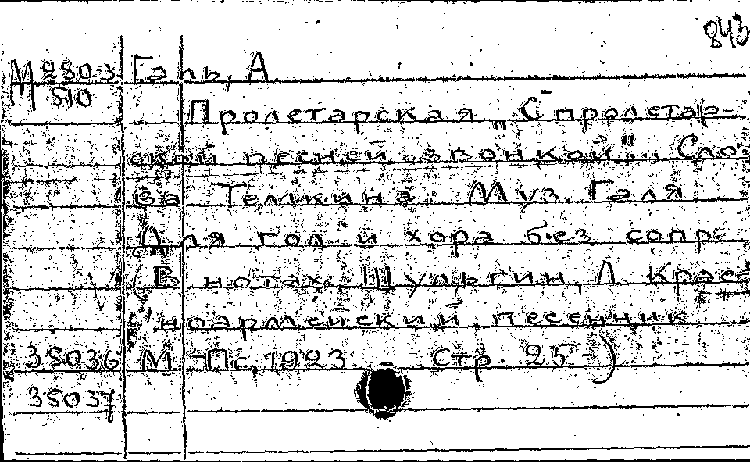 843
М 2803 Галь, А
М 510
Пролетарская „С пролетар-
ской песней звонкой". Сло-
ва Теликина. Муз. Галя
Для гол и хора без сопр.
(В нотах. Шульгин, Л. Крас-
ноармейский песенник
35036 М. Пг, 1923 Стр. 25-)
35037